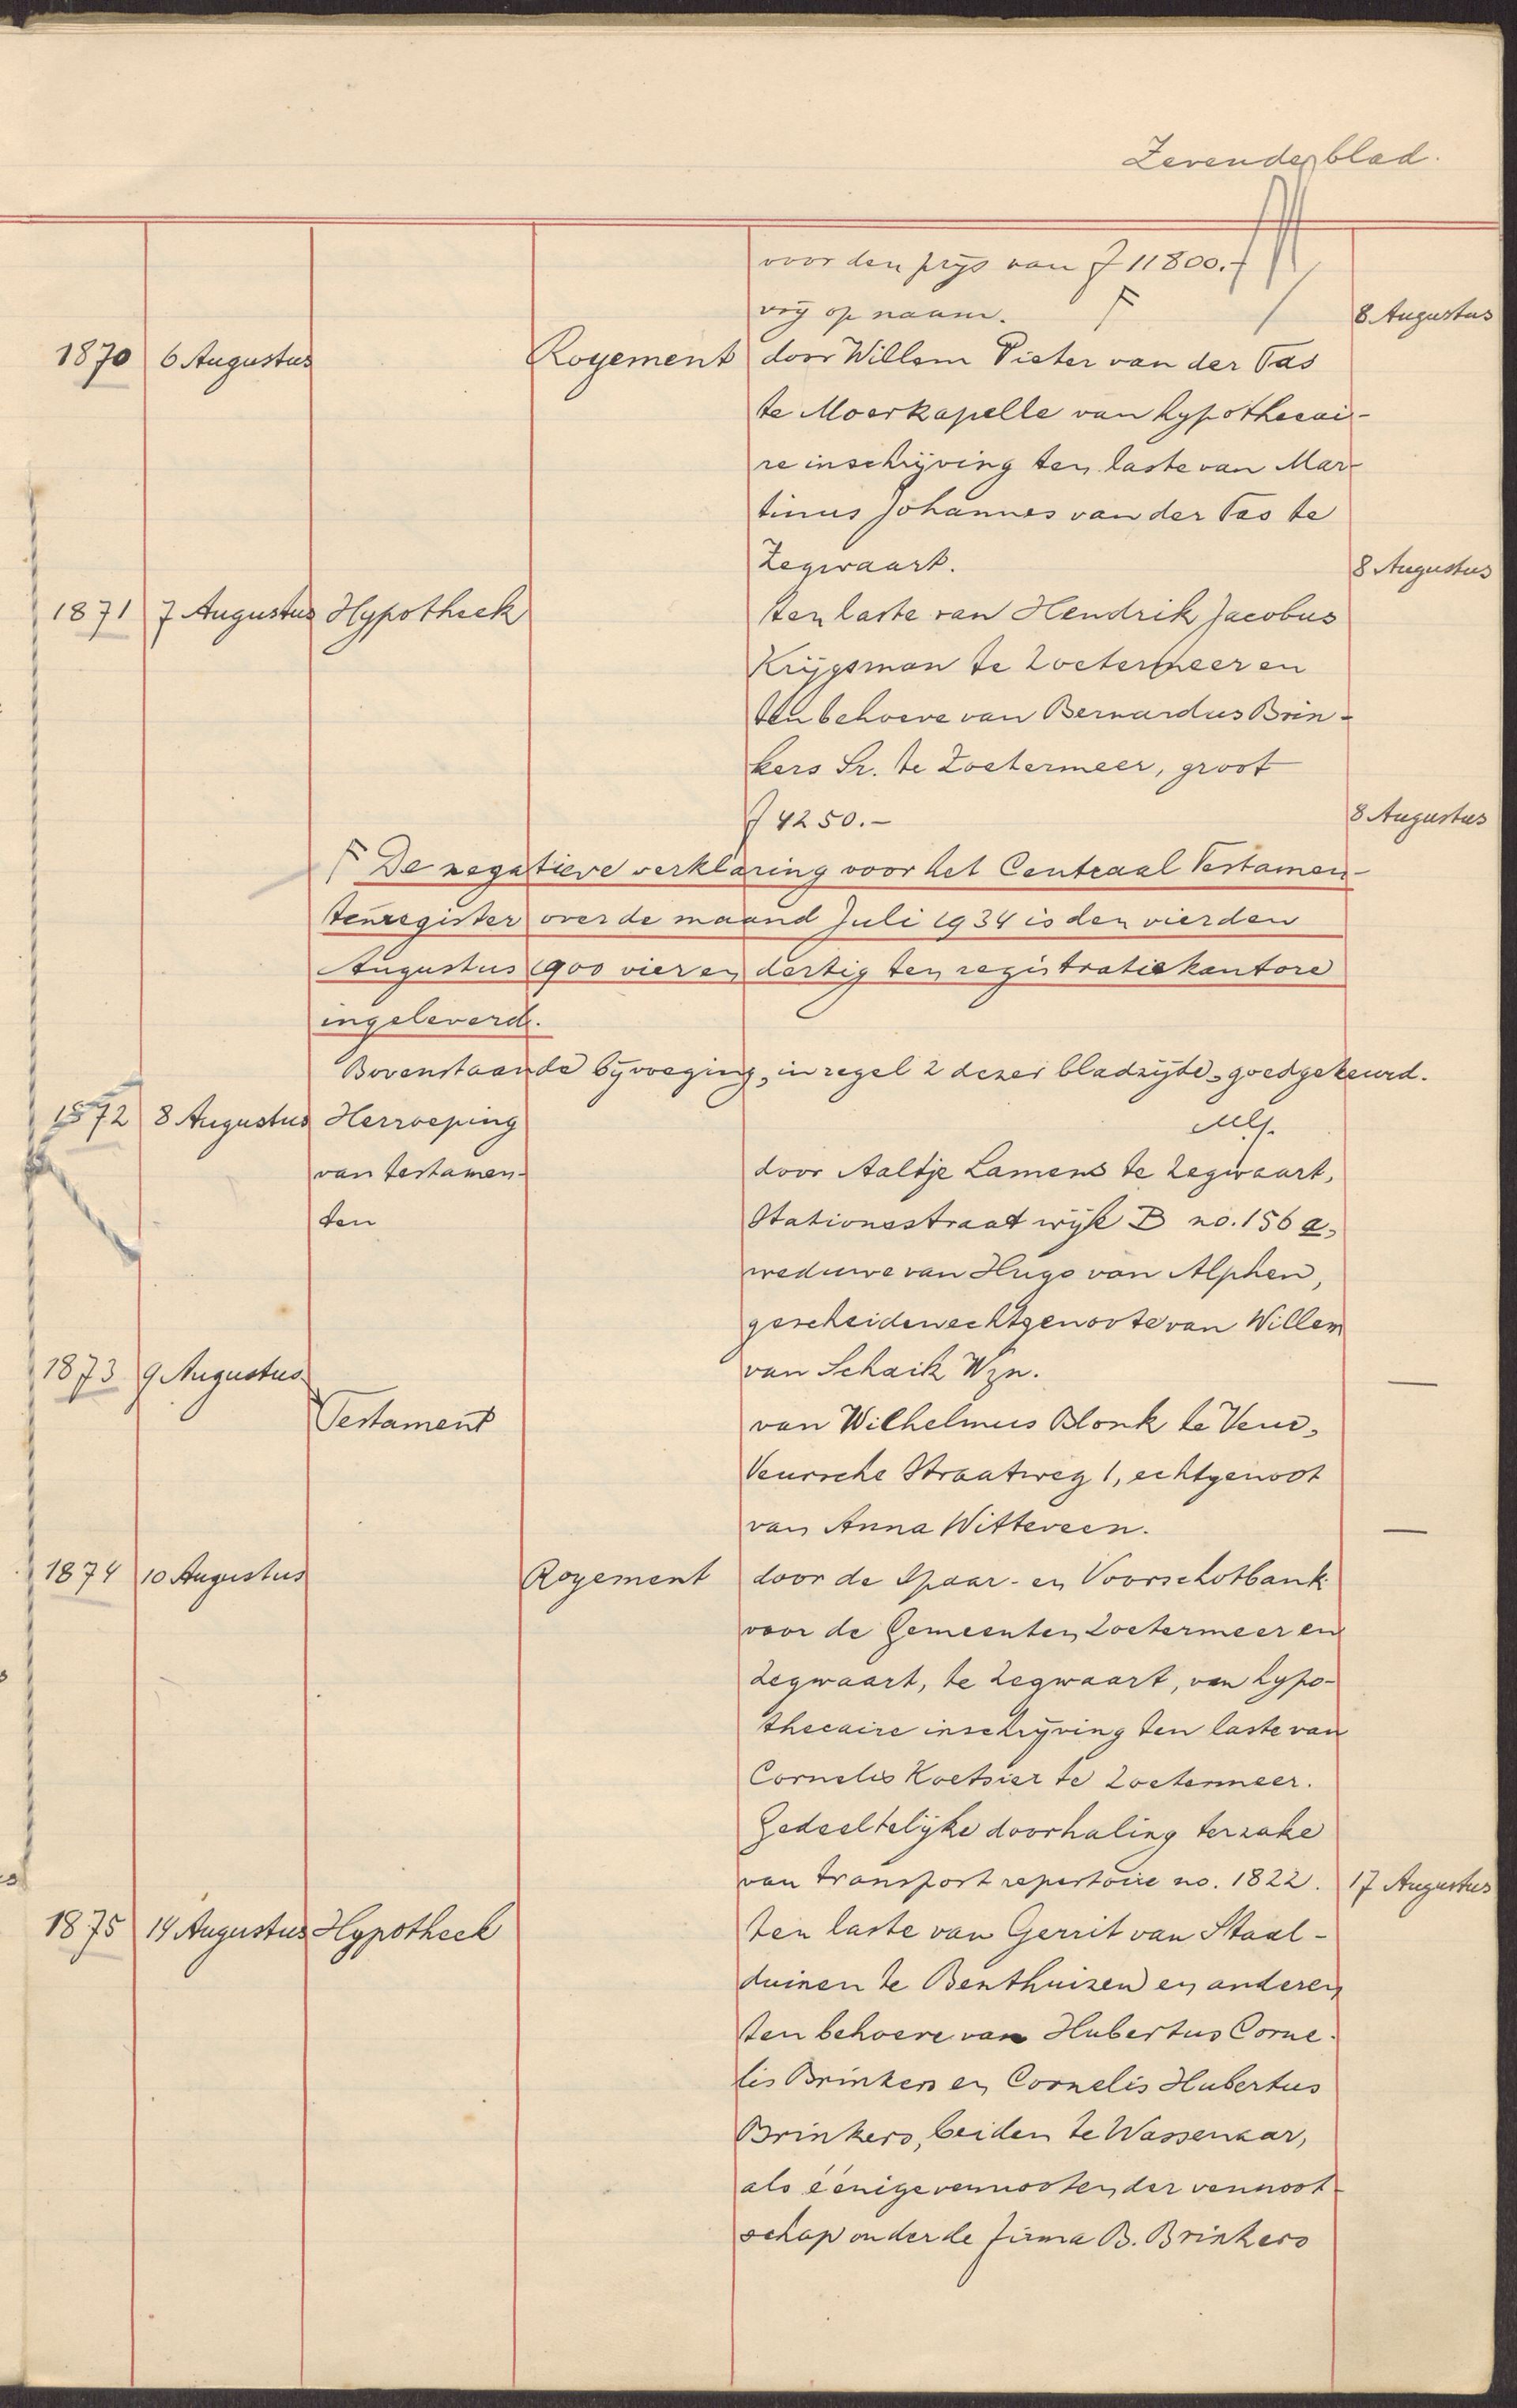 Zevende blad.
voor den prijs van ƒ 11800.-
vrij op naam. F
8 Augustus
1870 6 Augustus Royement door Willem Pieter van der Tas
te Moerkapelle van hypothecai-
re inschrijving ten laste van Mar-
tinus Johannes van der Tas te
Zegwaart.
8 Augustus
1871 7 Augustus Hypotheek ten laste van Hendrik Jacobus
Krijgsman te Zoetermeer en
ten behoeve van Bernardus Brin-
kers Sr. te Zoetermeer, groot
ƒ 4250.-
8 Augustus
F De negatieve verklaring voor het Centraal Testamen-
tenregister over de maand Juli 1934 is den vierden
Augustus 1900 vier en dertig ten registratiekantore
ingeleverd.
Bovenstaande bijvoeging, in regel 2 dezer bladzijde, goedgekeurd.
1872 8 Augustus Herroeping
van testamen- door Aaltje Lamens te Zegwaart,
ten Stationsstraat wijk B no. 156 a,
weduwe van Hugo van Alphen,
gescheiden echtgenoote van Willem
1873 9 Augustus van Schaik Wzn. —
Testament van Wilhelmus Blonk te Veur,
Veursche Straatweg 1, echtgenoot
van Anna Witteveen. —
1874 10 Augustus Royement door de Spaar- en Voorschotbank
voor de Gemeenten Zoetermeer en
Zegwaart, te Zegwaart, van hypo-
thecaire inschrijving ten laste van
Cornelis Koetsier te Zoetermeer.
Gedeeltelijke doorhaling terzake
van transport repertoire no. 1822. 17 Augustus
1875 14 Augustus Hypotheek ten laste van Gerrit van Staal-
duinen te Benthuizen en anderen
ten behoeve van Hubertus Corne-
lis Brinkers en Cornelis Hubertus
Brinkers, beiden te Wassenaar,
als éénige vennooten der vennoot-
schap onder de firma B. Brinkers